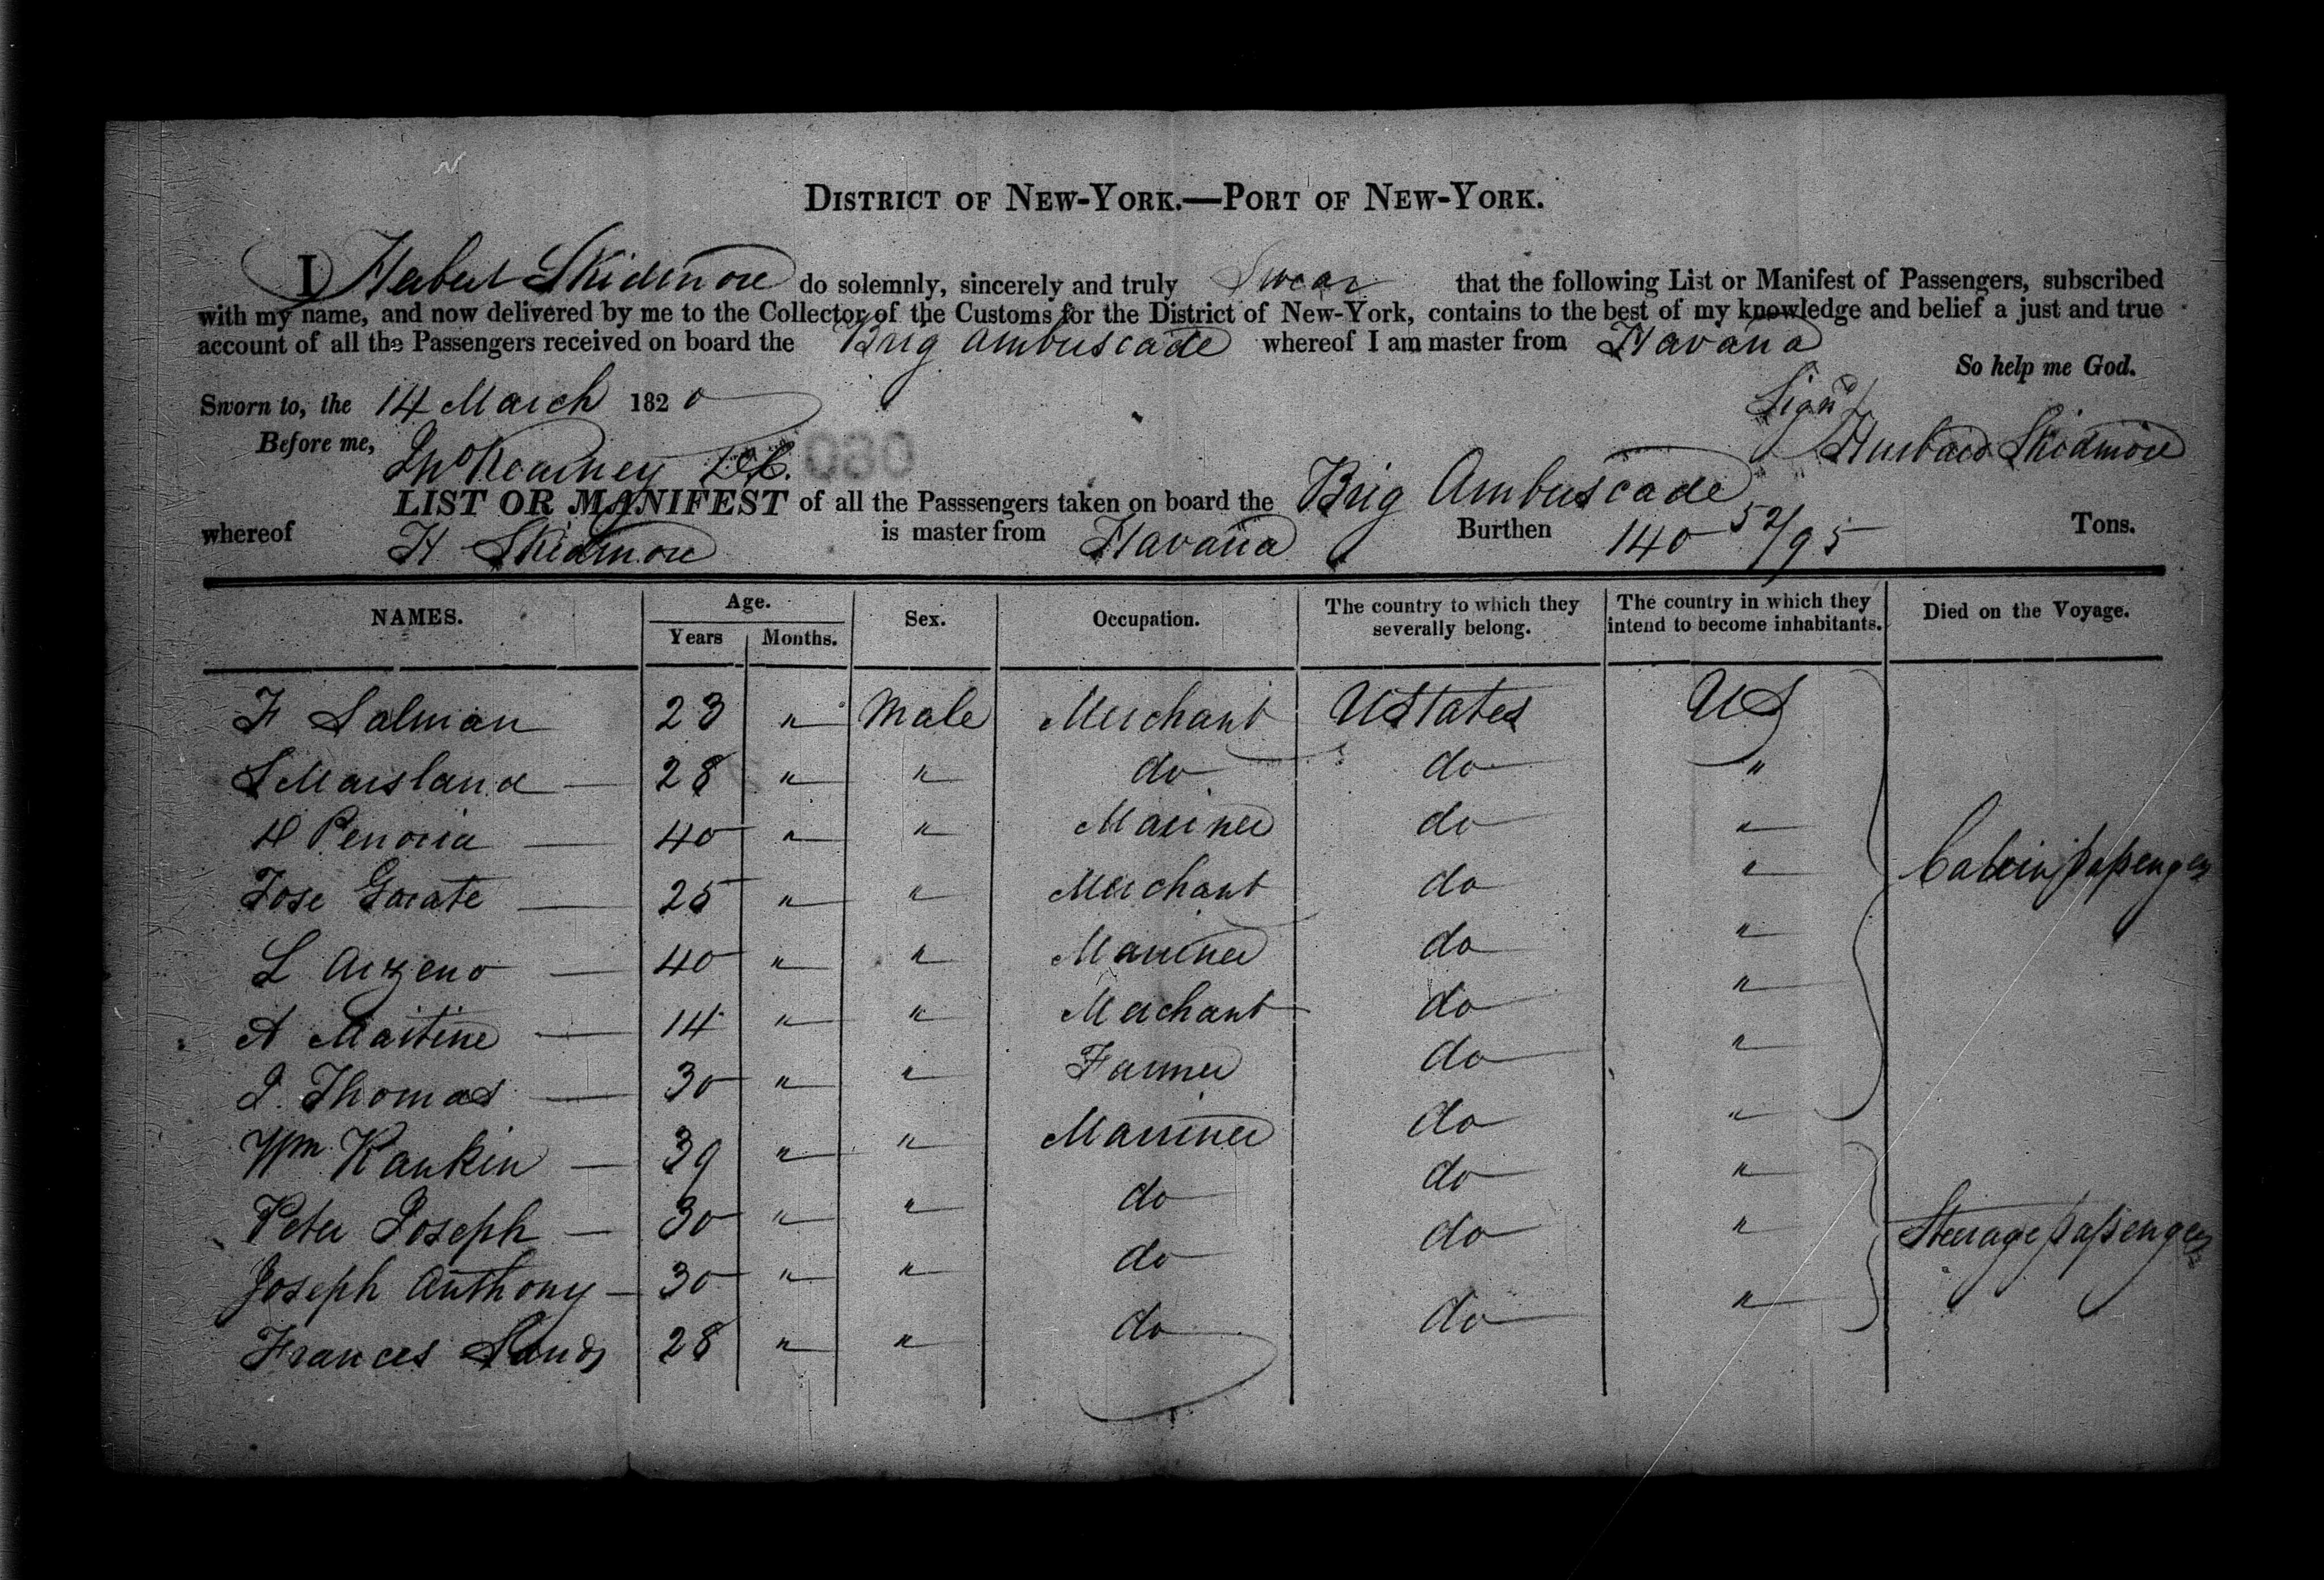 DISTRICT OF NEW-YORK.—PORT OF NEW-YORK.
I Skidmore do solemnly, sincerely and truly Swear that the following List or Manifest of Passengers, subscribed
with my name, and now delivered by me to the Collector of the Customs for the District of New-York, contains to the best of my knowledge and belief a just and true
account of all the Passengers received on board the Brig Ambuscade whereof I am master from Havana
So help me God.
Sworn to, the 14 March 1820
Sign'd
Before me, Jno Kearney
Skidmore
030
LIST OR MANIFEST of all the Passsengers taken on board the Brig Ambuscade
whereof H Skidmore is master from Havana Burthen 140 52/95 Tons.
NAMES. Age. Years Months. Sex. Occupation. The country to which they severally belong. The country in which they intend to become inhabitants. Died on the Voyage.
F Salman 23 " Male Merchant UStates US
S Marsland 28 " " do do "
40 " " Mariner do "
Jose Garate 25 " " Merchant do "
L Arzeno 40 " " Mariner do "
A Martine 14 " " Merchant do "
J. Thomas 30 " " Farmer do "
Wm Rankin 39 " " Mariner do "
Peter Joseph 30 " " do do "
Joseph Anthony 30 " " do do "
Frances Sands 28 " " do do "
Cabin passengers
Steerage passengers